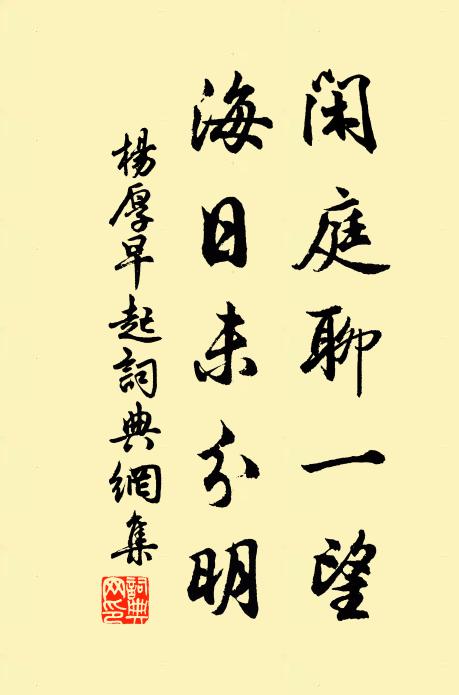 閑庭聊一望
海日未分明
楊厚早起詞典網集
詞典
网印